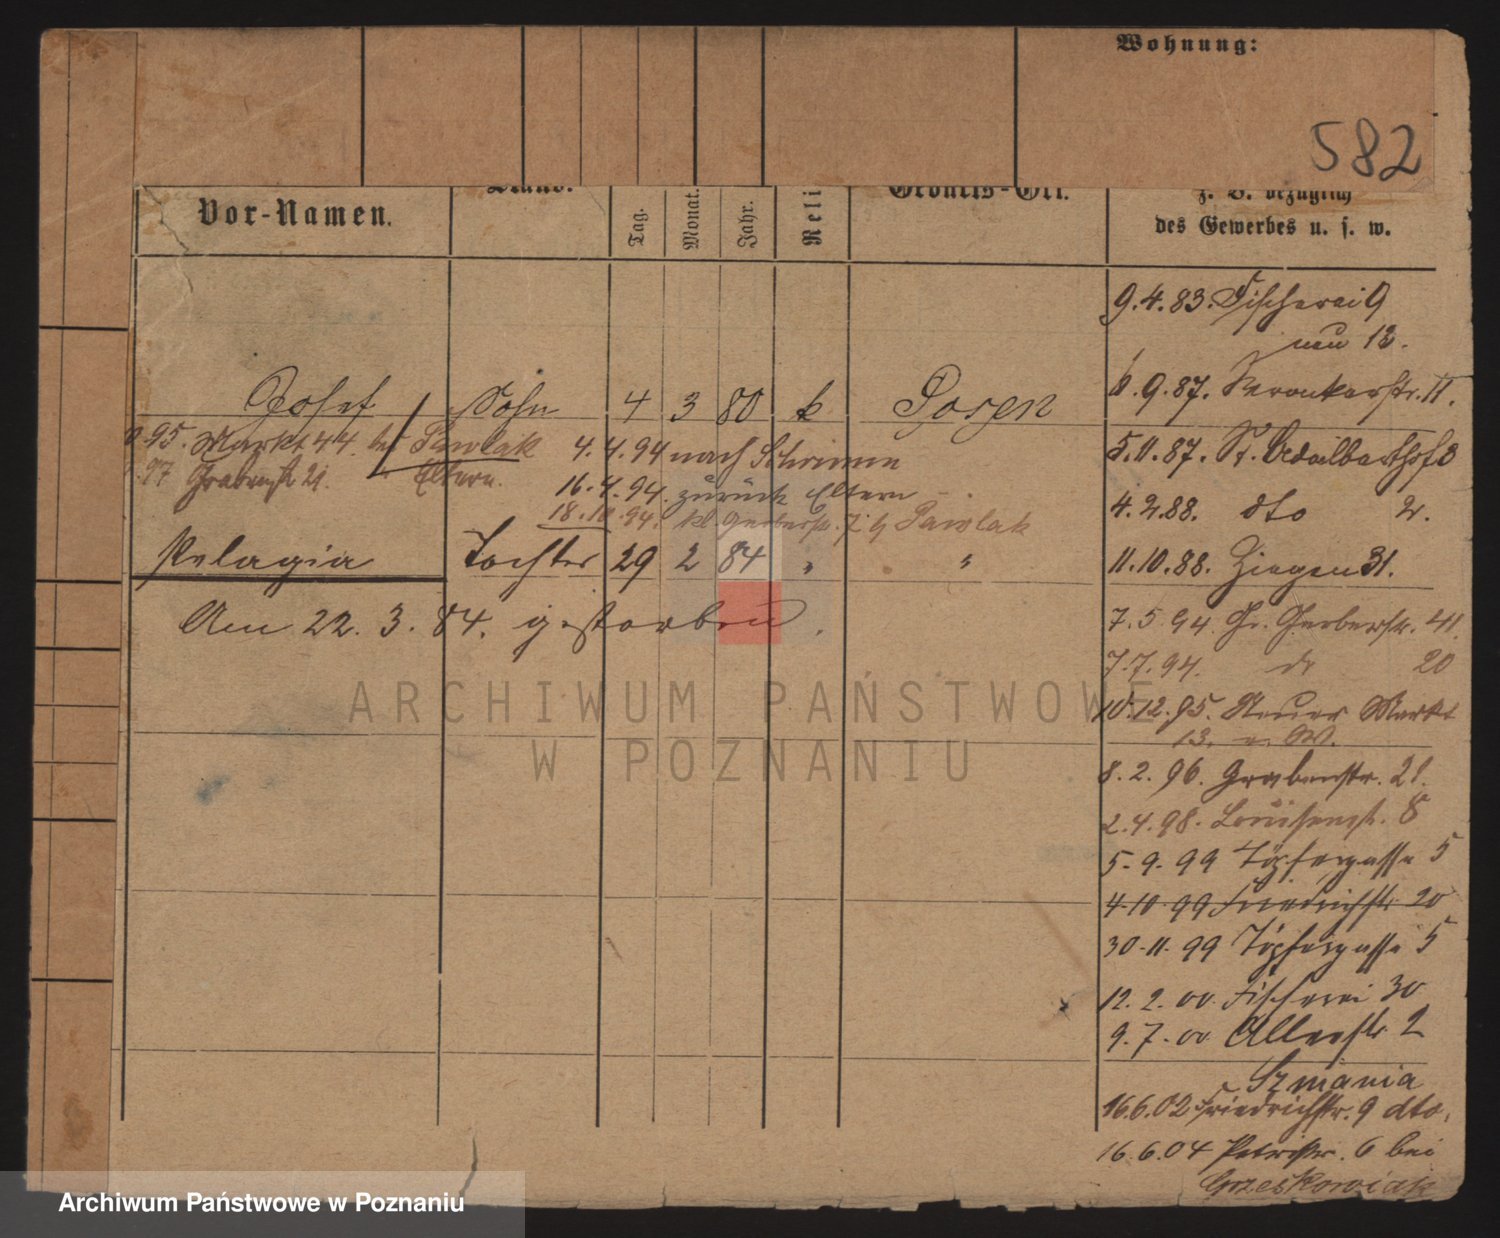 Wohnung:
582
Vor-Namen.
Stand.
Tag.
Monat.
Jahr.
Reli
Geburts-Ort.
z. B. bezüglich
des Gewerbes u. s. w.
9.4.83. Fischerei 9
neu 12.
6.9.87. Wronkerstr. 11.
5.11.87. St. Adalberthof 3
4.2.88. dto 2.
11.10.88. Ziegen 31.
7.5.94 Gr. Gerberstr. 41.
7.7.94. do 20
10.12.95. Neuer Markt
13. n. W.
8.2.96. Grabenstr. 21.
2.4.98. Louisenstr. 8
5.9.99 Töpfergasse 5
4.10.99 Friedrichstr 20
30.11.99 Töpfergasse 5
12.2.00 Fischerei 30
9.7.00 Allerstr 2
Szmania
16.6.02 Friedrichstr. 9 dto.
16.6.04 Petristr. 6 bei
Grzeskowiak
Josef Sohn 4 3 80 k Posen
95. Markt 44. bei Pawlak 4.4.94 nach Schrimm
97 Grabenstr 21. Eltern. 16.4.94. zurück Eltern
18.10.94. kl. Gerberstr. 7 b Pawlak
Pelagia Tochter 29 2 84 " "
Am 22. 3. 84. gestorben.
ARCHIWUM PAŃSTWOWE
W POZNANIU
Archiwum Państwowe w Poznaniu